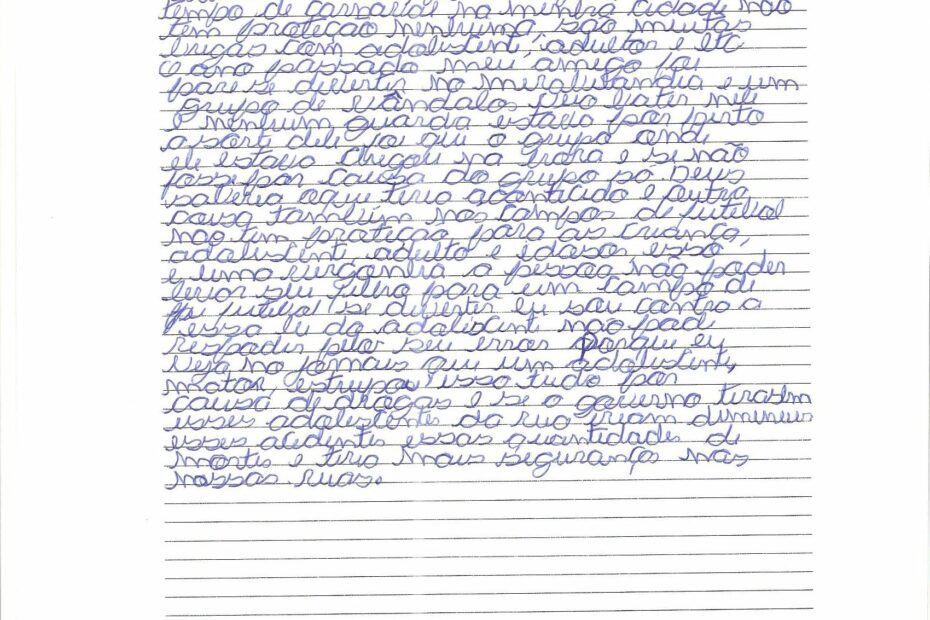 tempo de carnaval na minha cidade não
tem proteção nenhuma, são muitas
brigas com adolistent, adultos e etc
O ano passado meu amigo foi
para se divertir no e um
grupo de vândalos veio bater nele
e nenhum guarda estava por perto
a sorte dele foi que o grupo onde
ele estava chegou na hora e se não
fosse por causa do grupo só Deus
saberia oque teria acontecido e outra
coisa também nos campos de futebol
não tem proteção para as criança,
adolescente, adulto e idosos isso
é uma a pessoa não poder
levar seu filho para um campo de
futebol se divertir eu sou contra a
essa lei da adolescente não pode
responder pelos seu erros porque eu
vejo no jornais que um adolescente,
matar, estrupar isso tudo por
causa de drogas e se o governo tirasem
esses adolescentes da rua iriam
esses acidentes essas quantidades de
mortes e teria mais segurança nas
nossas ruas.